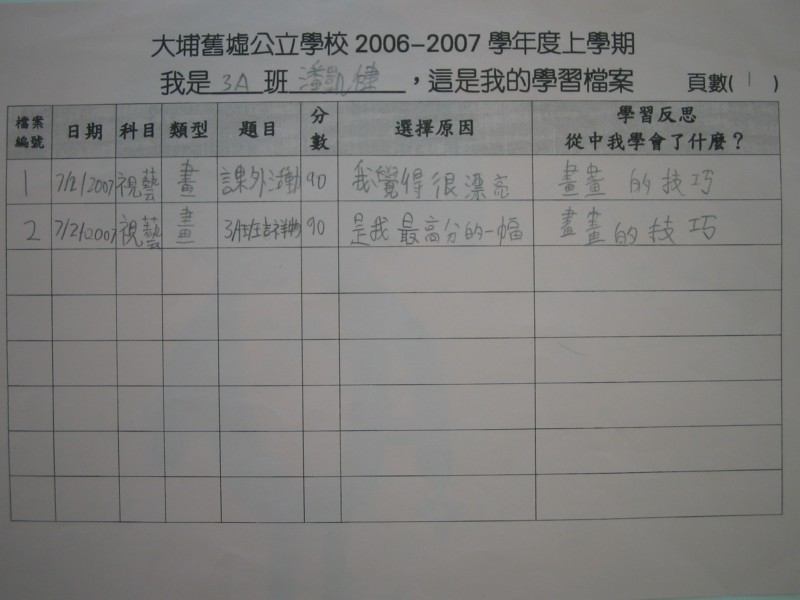 大埔舊墟公立學校 2006-2007 學年度上學期
我是 3A 班 潘凱健 ，這是我的學習檔案 頁數( 1 )
檔案編號 日期 科目 類型 題目 分數 選擇原因 學習反思 從中我學會了什麼？
1 7/2/2007 視藝 畫 課外活動 90 我覺得很漂亮 畫畫的技巧
2 7/2/2007 視藝 畫 吉祥物 90 是我最高分的一幅 畫畫的技巧